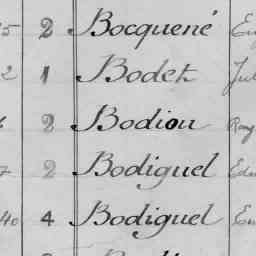 5 2 Bocquené
2 1 Bodet
2 Bodiou
7 2 Bodiguel
40 4 Bodiguel